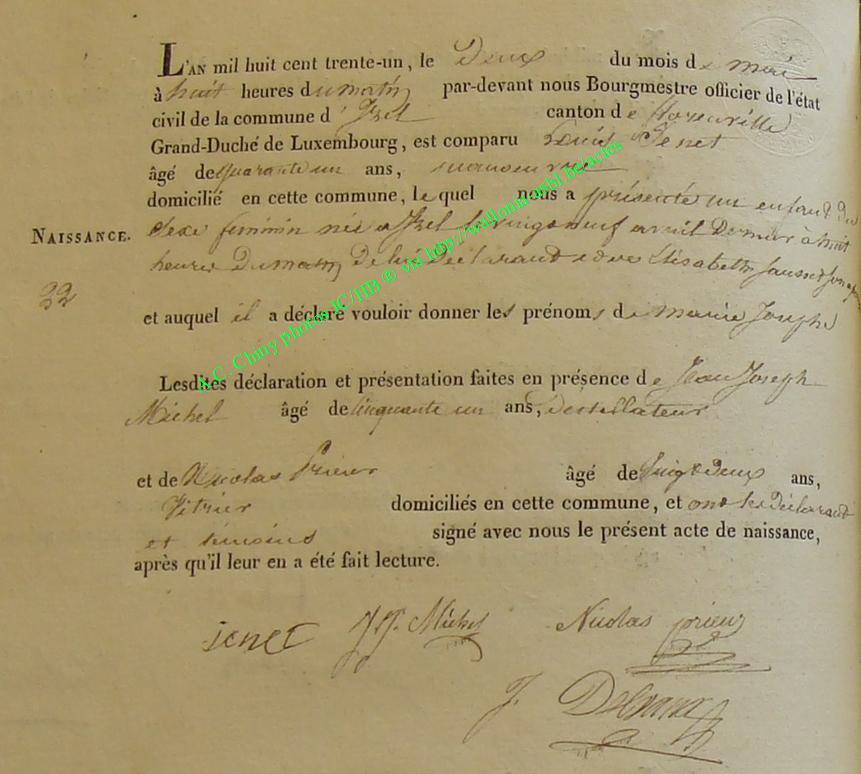 L'AN mil huit cent trente-un, le Deux du mois de mai
à huit heures du matin par-devant nous Bourgmestre officier de l'état
civil de la commune d'Izel canton de florenville
Grand-Duché de Luxembourg, est comparu Louis Jenet
âgé de quarante un ans, manoeuvre
domicilié en cette commune, lequel nous a présenté un enfant du
NAISSANCE. sexe feminin née a Izel le vingt neuf avril Dernier à huit
heures Du matin De lui Déclarant et de Elisabeth
22
et auquel il a déclaré vouloir donner les prénoms de marie Josephe
Lesdites déclaration et présentation faites en présence de Jean Joseph
Michel âgé de cinquante un ans, Destillateur
et de Nicolas Prieur âgé de vingt Deux ans,
Vitrier domiciliés en cette commune, et ont les Déclarant
et témoins signé avec nous le présent acte de naissance,
après qu'il leur en a été fait lecture.
jenet J. J. Michel Nicolas prieur
J.
A.C. Chiny photos IC/HB ® via http://wallonia.ombl.be/actes